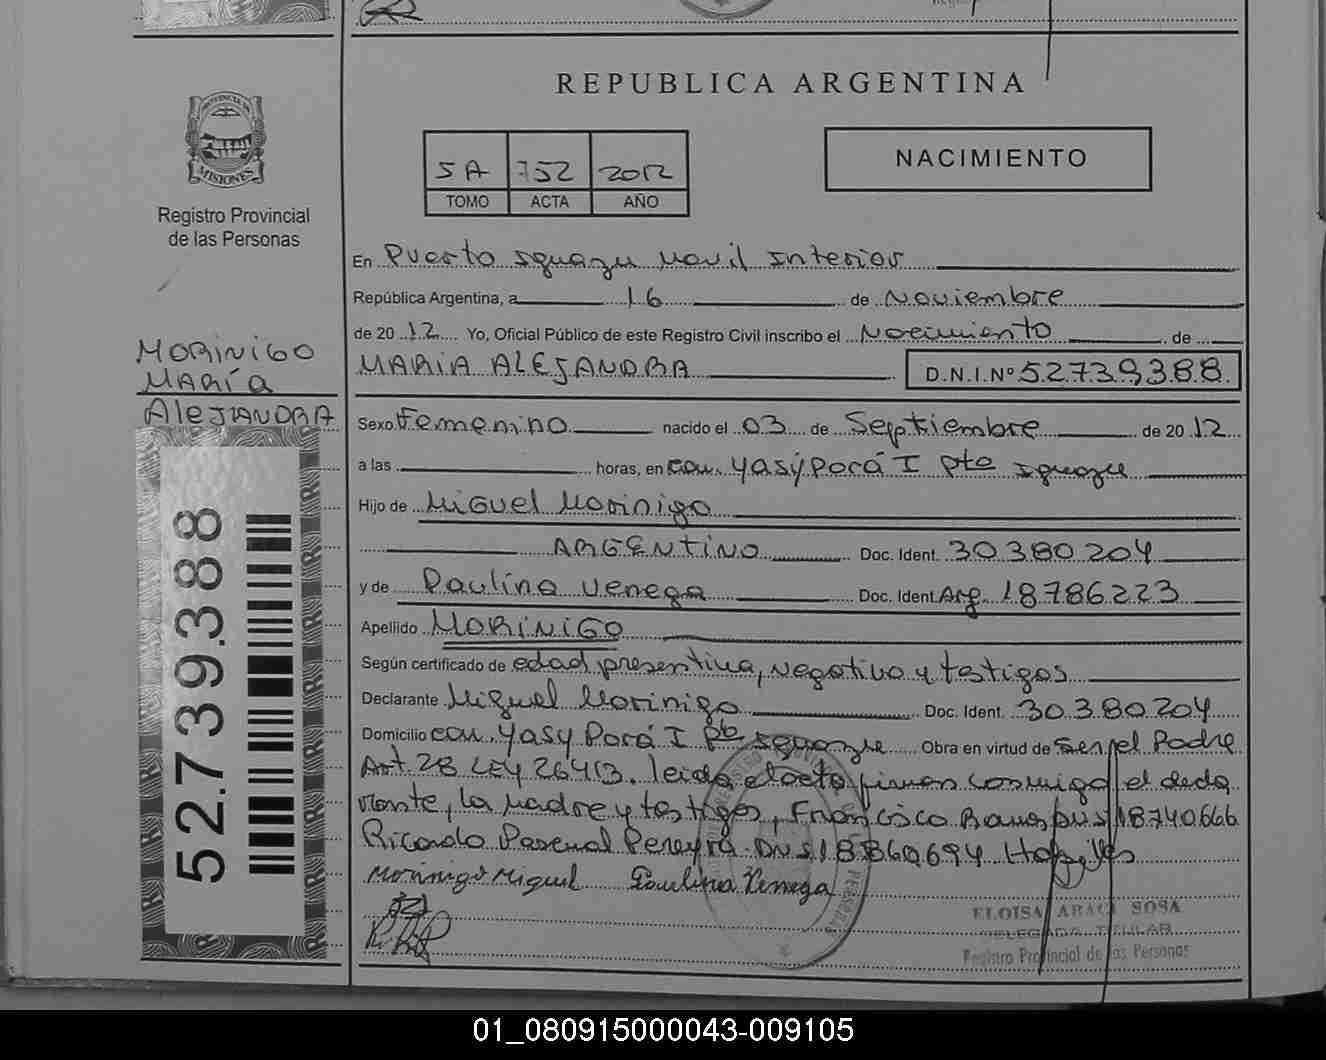 REPUBLICA ARGENTINA
PROVINCIA DE
MISIONES
Registro Provincial
de las Personas
5A 752 2012
TOMO ACTA AÑO
NACIMIENTO
En Puerto Iguazu Movil Interior
República Argentina, a 16 de Noviembre
de 20 12 Yo, Oficial Público de este Registro Civil inscribo el Nacimiento de
MARIA ALEJANDRA D.N.I.Nº 52739388
MORINIGO
MARÍA
AleJANDRA
Sexo Femenino nacido el 03 de Septiembre de 20 12
a las horas, en com. Yasy Porá I Pto Iguazu
Hijo de Miguel Morinigo
ARGENTINO Doc. Ident. 30380204
y de Paulina Venega Doc. Ident. Arg. 18786223
Apellido MORINIGO
Según certificado de edad presentiva, negativo y testigos
Declarante Miguel Morinigo Doc. Ident. 30.380204
Domicilio com. Yasy Porá I Pto Iguazu Obra en virtud de Ser el Padre
Art. 28 LEY 26413. leida el acta firman conmigo el decla
rante, la madre y testigos, Francisco Ramos DNI 18740666
Ricardo Pascual Pereyra DNI 18860694
Morinigo Miguel Paulina Venega
ELOISA ARACI SOSA
DELEGADA TITULAR
Registro Provincial de las Personas
52.739.388
01_080915000043-009105